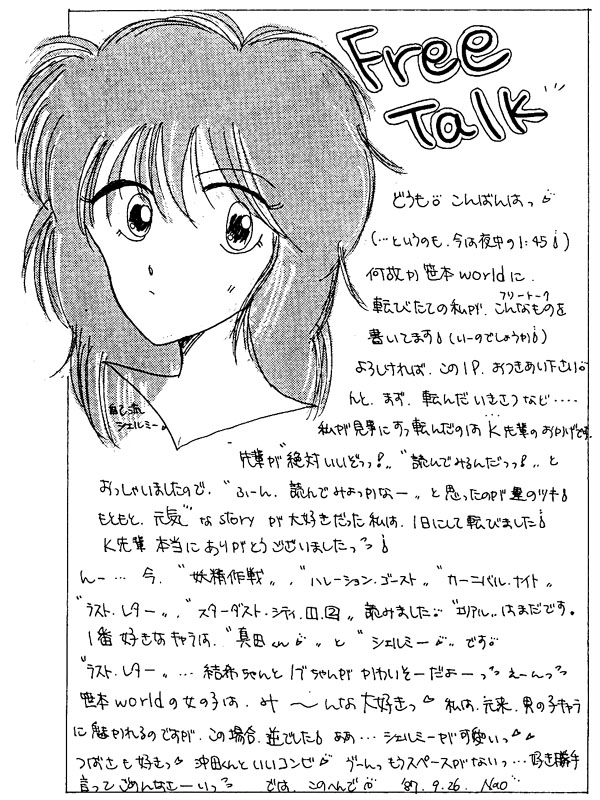 Free
Talk
どうも。こんばんはっ
(…というのも、今は夜中の1:45!)
何故か笹本worldに、
転びたての私が、こんなものを
フリートーク
書いてます!(いーのでしょうか!)
よろしければ、この1P、おつきあい下さい
んと、まず、転んだいきさつなど‥‥
私が見事にすっ転んだのは、K先輩のおかげです。
自己流
シェルミー。
先輩が"絶対いいぞっ!""読んでみるんだっっ!"と
おっしゃいましたので、"ふーん、読んでみよっかなー"と思ったのが運のツキ!
もともと、"元気"なstoryが大好きだった私は、1日にして転びました!
K先輩本当にありがとうございましたっっ!
んー…今、"妖精作戦"、"ハレーション・ゴースト"、"カーニバル・ナイト"
"ラスト・レター"、"スターダスト・シティ①②"読みました。"エリアル"はまだです。
1番好きなキャラは、"真田くん"と"シェルミー"です
"ラスト・レター"…結希ちゃんとノブちゃんがかわいそーだよーっっえーんっっ
笹本worldの女の子は、み〜んな大好きっ 私は、元来、男の子キャラ
に魅かれるのですが、この場合、逆でした!ああ…シェルミーが可愛いっ
つばさも好きっ 沖田くんといいコンビ うーんっもうスペースがないっ…好き勝手
言ってごめんなさーいっっ では、このへんで '87.9.26. Nao